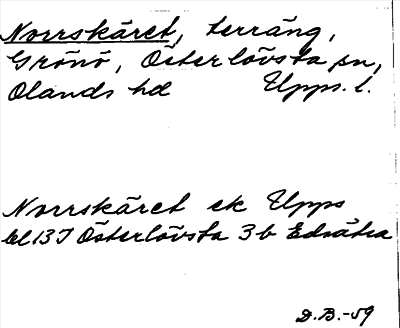 Norrskäret, terräng,
Grönö, Österlövsta sn,
Olands hd Upps. l.
Norrskäret ek Upps
bl 13 I Österlövsta 3b Edsätra
D.B.-59